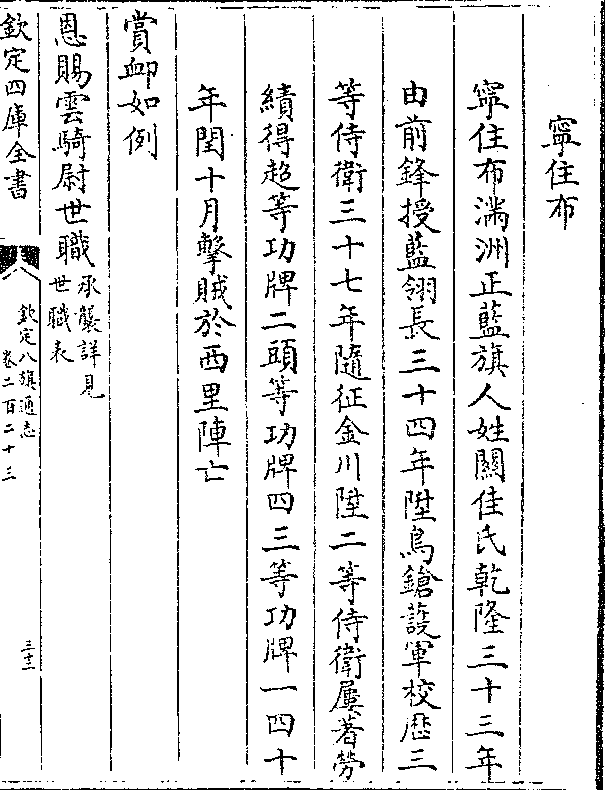 寧住布
寧住布滿洲正藍旗人姓關佳氏乾隆三十三年
由前鋒授藍翎長三十四年陞鳥鎗護軍校歷三
等侍衛三十七年隨征金川陞二等侍衛屢著勞
績得超等功牌二頭等功牌四三等功牌一四十
年閏十月擊賊於西里陣亡
賞䘏如例
恩賜雲騎尉世職承襲詳見
世職表
欽定四庫全書
欽定八旗通志
卷二百二十三
三十二